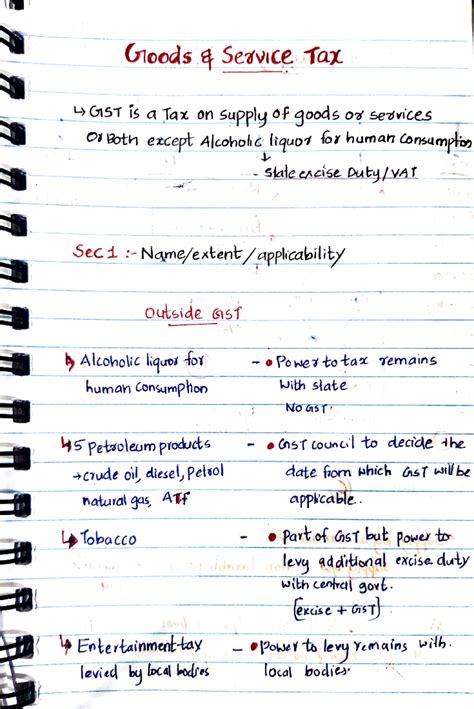 Goods & Service Tax
↳ GST is a Tax on supply of goods or services
Or Both except Alcoholic liquor for human Consumption
↓
- State excise Duty/VAT
Sec 1 :- Name/extent/applicability
Outside GST
↳ Alcoholic liquor for - • Power to tax remains
human Consumption with state
No GST.
↳ 5 Petroleum products - • GST council to decide the
→ crude oil, diesel, Petrol date from which GST will be
natural gas, ATF applicable.
↳ Tobacco - • Part of GST but power to
levy additional excise duty
with central govt.
[excise + GST]
↳ Entertainment tax - • Power to levy remains with
levied by local bodies local bodies.